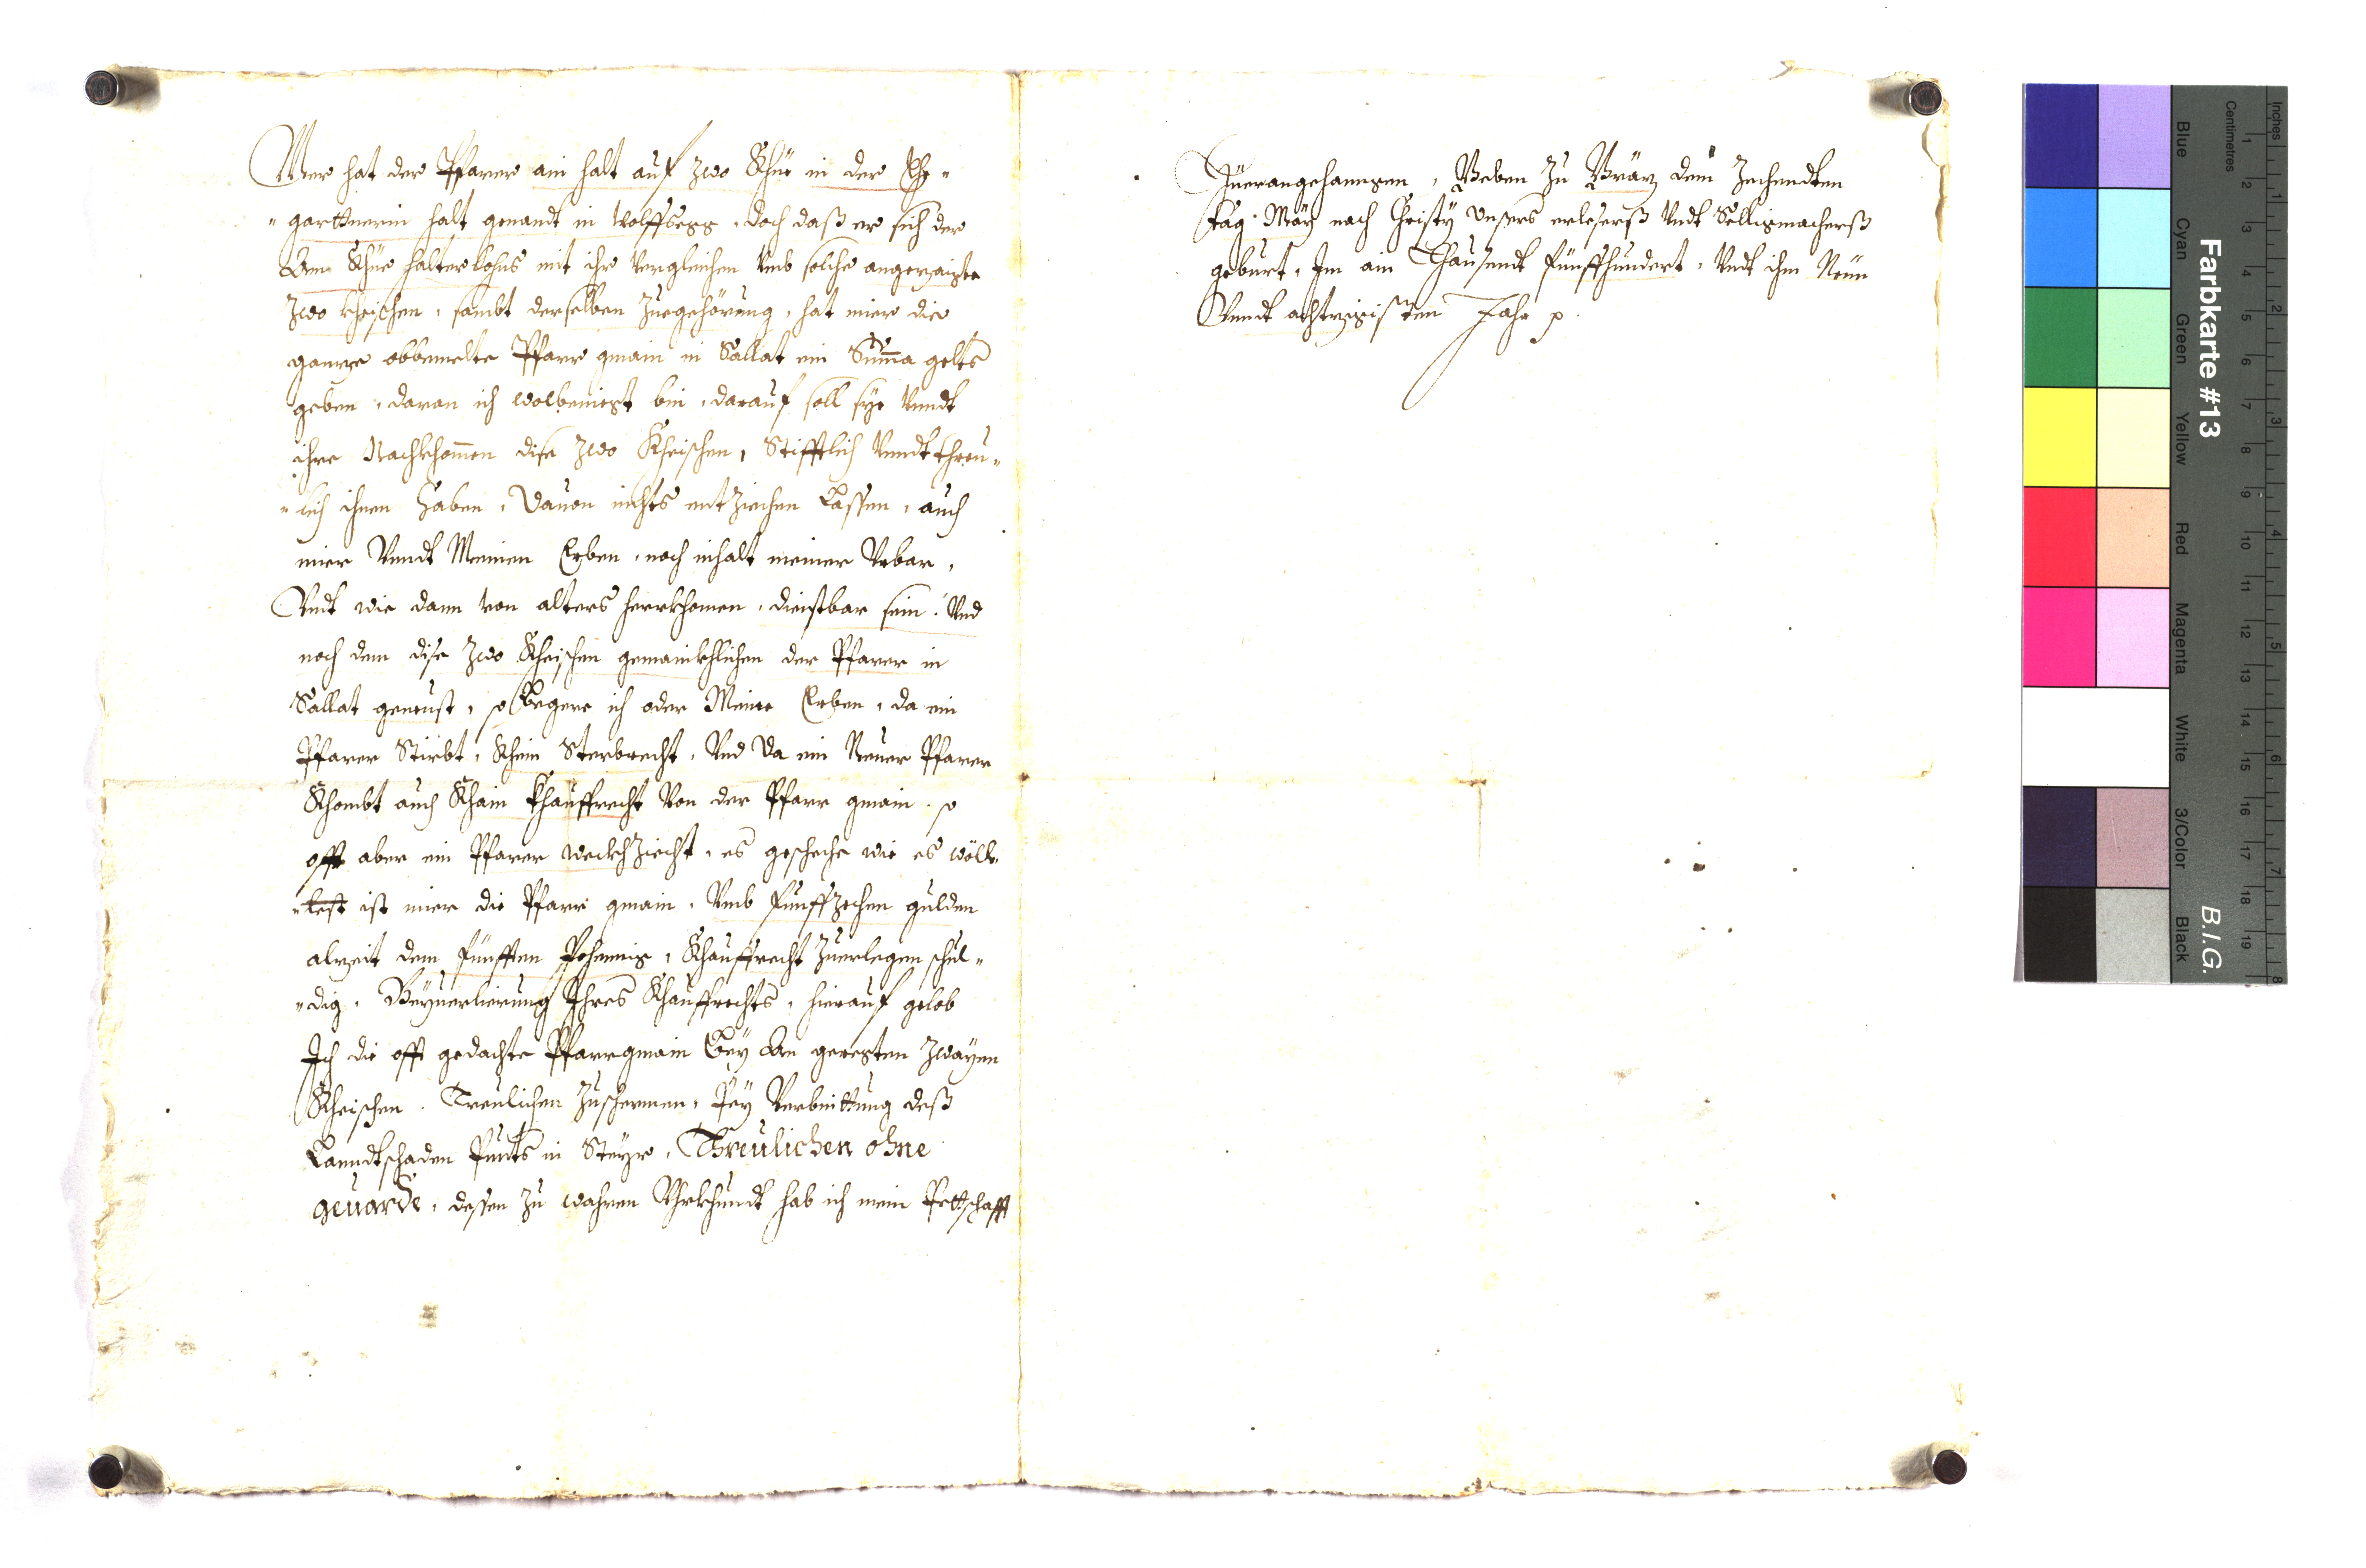 Mer hat der Pfarer ain halt auf zwo Khüe in der
gartnerin halt genandt in Wolffsegg, doch daß er sich der
Khüe halterlohns mit ihr vergleichen vmb solche angezaigte
zwo kheischen, sambt derselben zuegehörung, hat mier die
gancze obbemelte Pfarr gmain in Sallat ein Summa gelts
geben, daran ich wolbeniegt bin, darauf soll sye vnndt
ihre Nachkhommen dise zwo Kheischen, Stifftlich vnndt threu-
-lich ihnen haben, dauon nichts entziechen Lassen, auch
mier vnndt Meinen Erben, nach inhalt meiner Vrbar,
Vndt wie dann von alters herrkhomen, dienstbar sein. Vnd
noch dem dise zwo Kheischen gemainkhlichen der Pfarer in
Sallat geneust, so Begere ich oder Meine Erben, da ein
Pfarer Stirbt, Khein Sterbrecht, Vnd da ein Neuer Pfarer
Khombt auch Khain Khauffrecht von der Pfarr gmain. so
offt aber ein Pfarer weckh ziecht, es geschehe wie es wölle
ist mier die Pfarr gmain, vmb Funffzechen gulden
alzeit dem fünfften Pfening, Khauffrecht zuerlegen schul-
-dig. Beyuerlierung Ihres Khauffrechts, hierauf gelob
Ich die offt gedachte Pfarrgmain Bey geregten zwayen
Kheischen. Treulichen zuschermen, Pey Verbindtung deß
Lanndtschaden Punts in Steyr, Threulichen ohne
geuarde, dessen zu wahren Vhrkhundt hab ich mein Pettschafft
Hüerangehanngen, Geben zu Gräz dem Zechendten
tag May nach Christy vnsers erlesers vndt Selligmacherß
geburt, Im ain Thausendt fünffhundert, vndt ihm Neün
Vnndt achtzigisten Jahr p.
Farbkarte #13
B.I.G.
Inches
Centimetres
Blue
Cyan
Green
Yellow
Red
Magenta
White
3/Color
Black
1 2 3 4 5 6 7 8 9 10 11 12 13 14 15 16 17 18 19
1 2 3 4 5 6 7 8